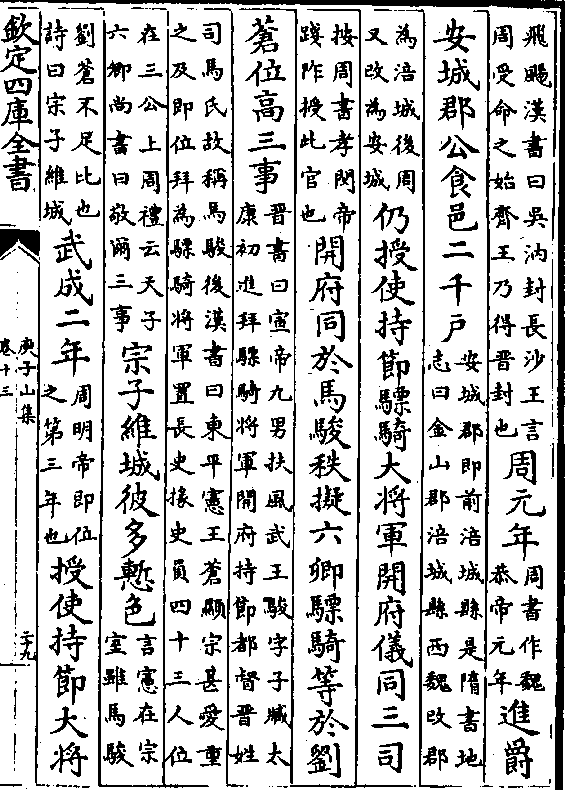 飛颺漢書曰吳汭封長沙王言周受命之始齊王乃得晉封也周元年周書作魏恭帝元年進爵
安城郡公食邑二千户安城郡即前涪城縣是隋書地志曰金山郡涪城縣西魏改郡
為涪城後周又改為安城仍授使持節驃騎大將軍開府儀同三司
按周書孝閔帝踐阼授此官也開府同於馬駿秩擬六卿驃騎等於劉
蒼位高三事晉書曰宣帝九男扶風武王駿字子臧太康初進拜驃騎將軍開府持節都督晉姓
司馬氏故稱馬駿後漢書曰東平憲王蒼顯宗甚愛重之及即位拜為驃騎將軍置長史掾史員四十三人位
在三公上周禮云天子六卿尚書曰敬爾三事宗子維城彼多慙色言憲在宗室雖馬駿
劉蒼不足比也詩曰宗子維城武成二年周明帝即位之第三年也授使持節大將
欽定四庫全書
庾子山集
卷十三